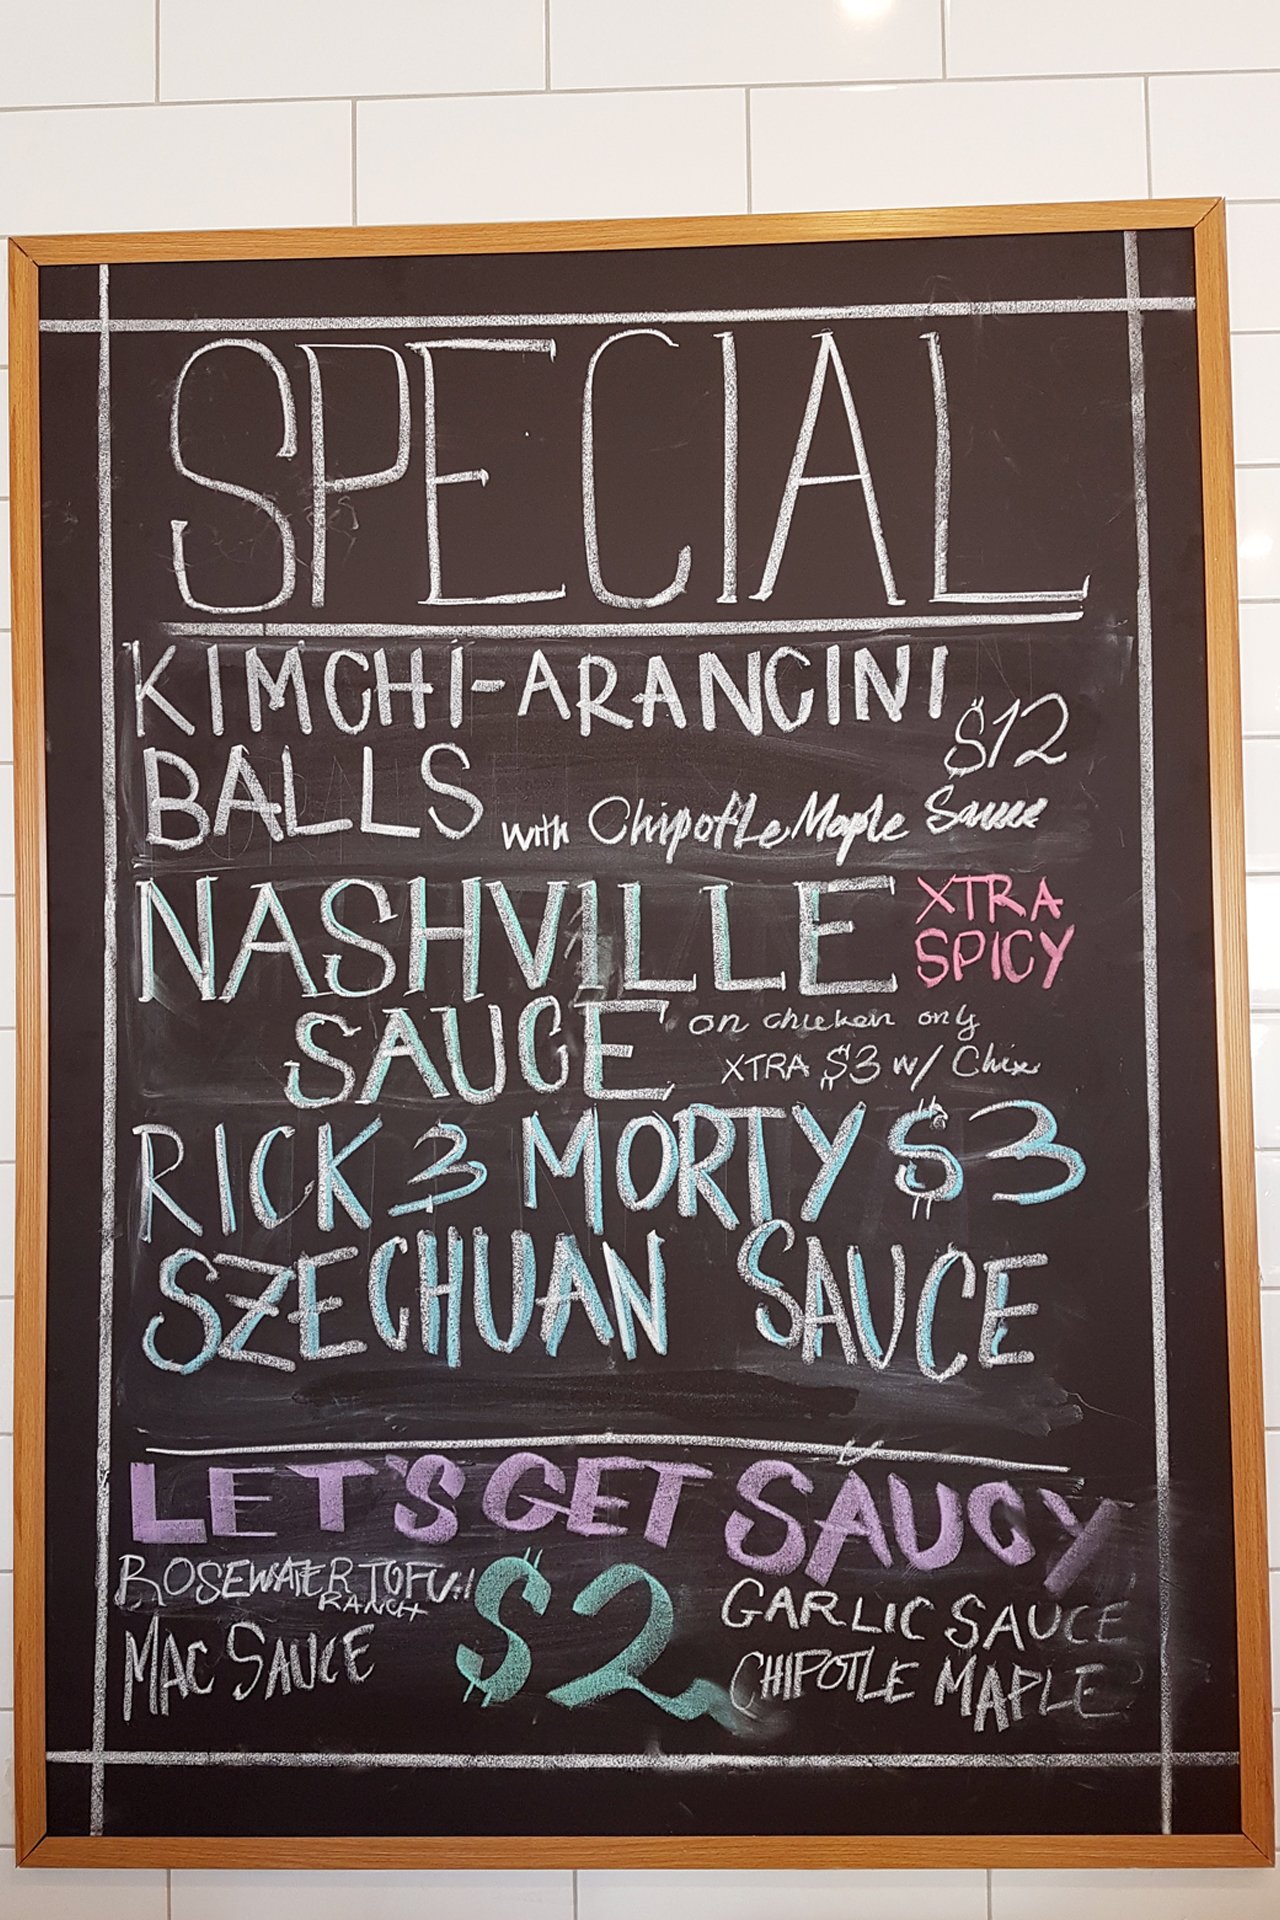 SPECIAL
KIMCHI-ARANCINI
BALLS with Chipotle Maple Sauce
$12
NASHVILLE
XTRA
SPICY
SAUCE
on chicken only
XTRA $3 w/ Chix
RICK & MORTY $3
SZECHUAN SAUCE
LET'S GET SAUCY
ROSEWATER TOFU
RANCH
MAC SAUCE
$2
GARLIC SAUCE
CHIPOTLE MAPLE